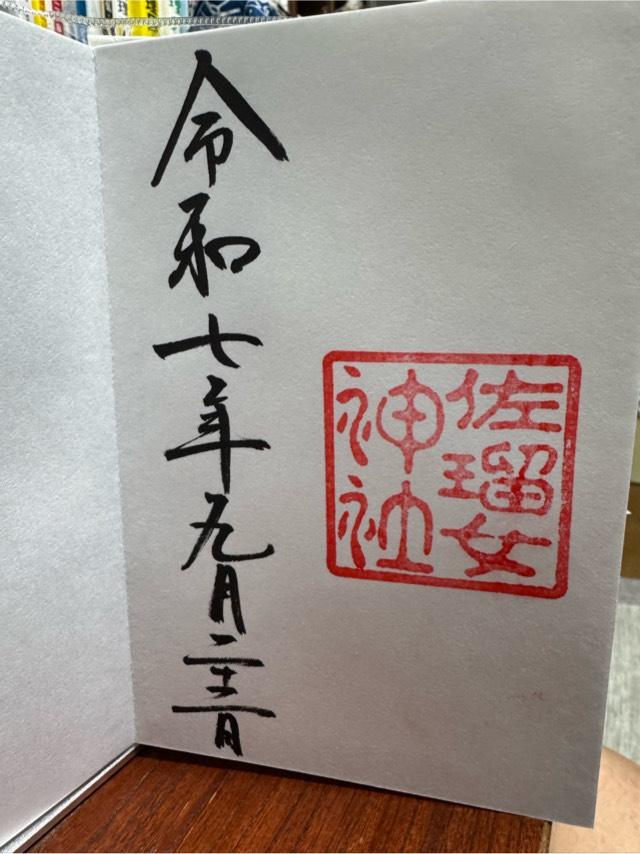 佐瑠女
神社
令和七年九月二十二日